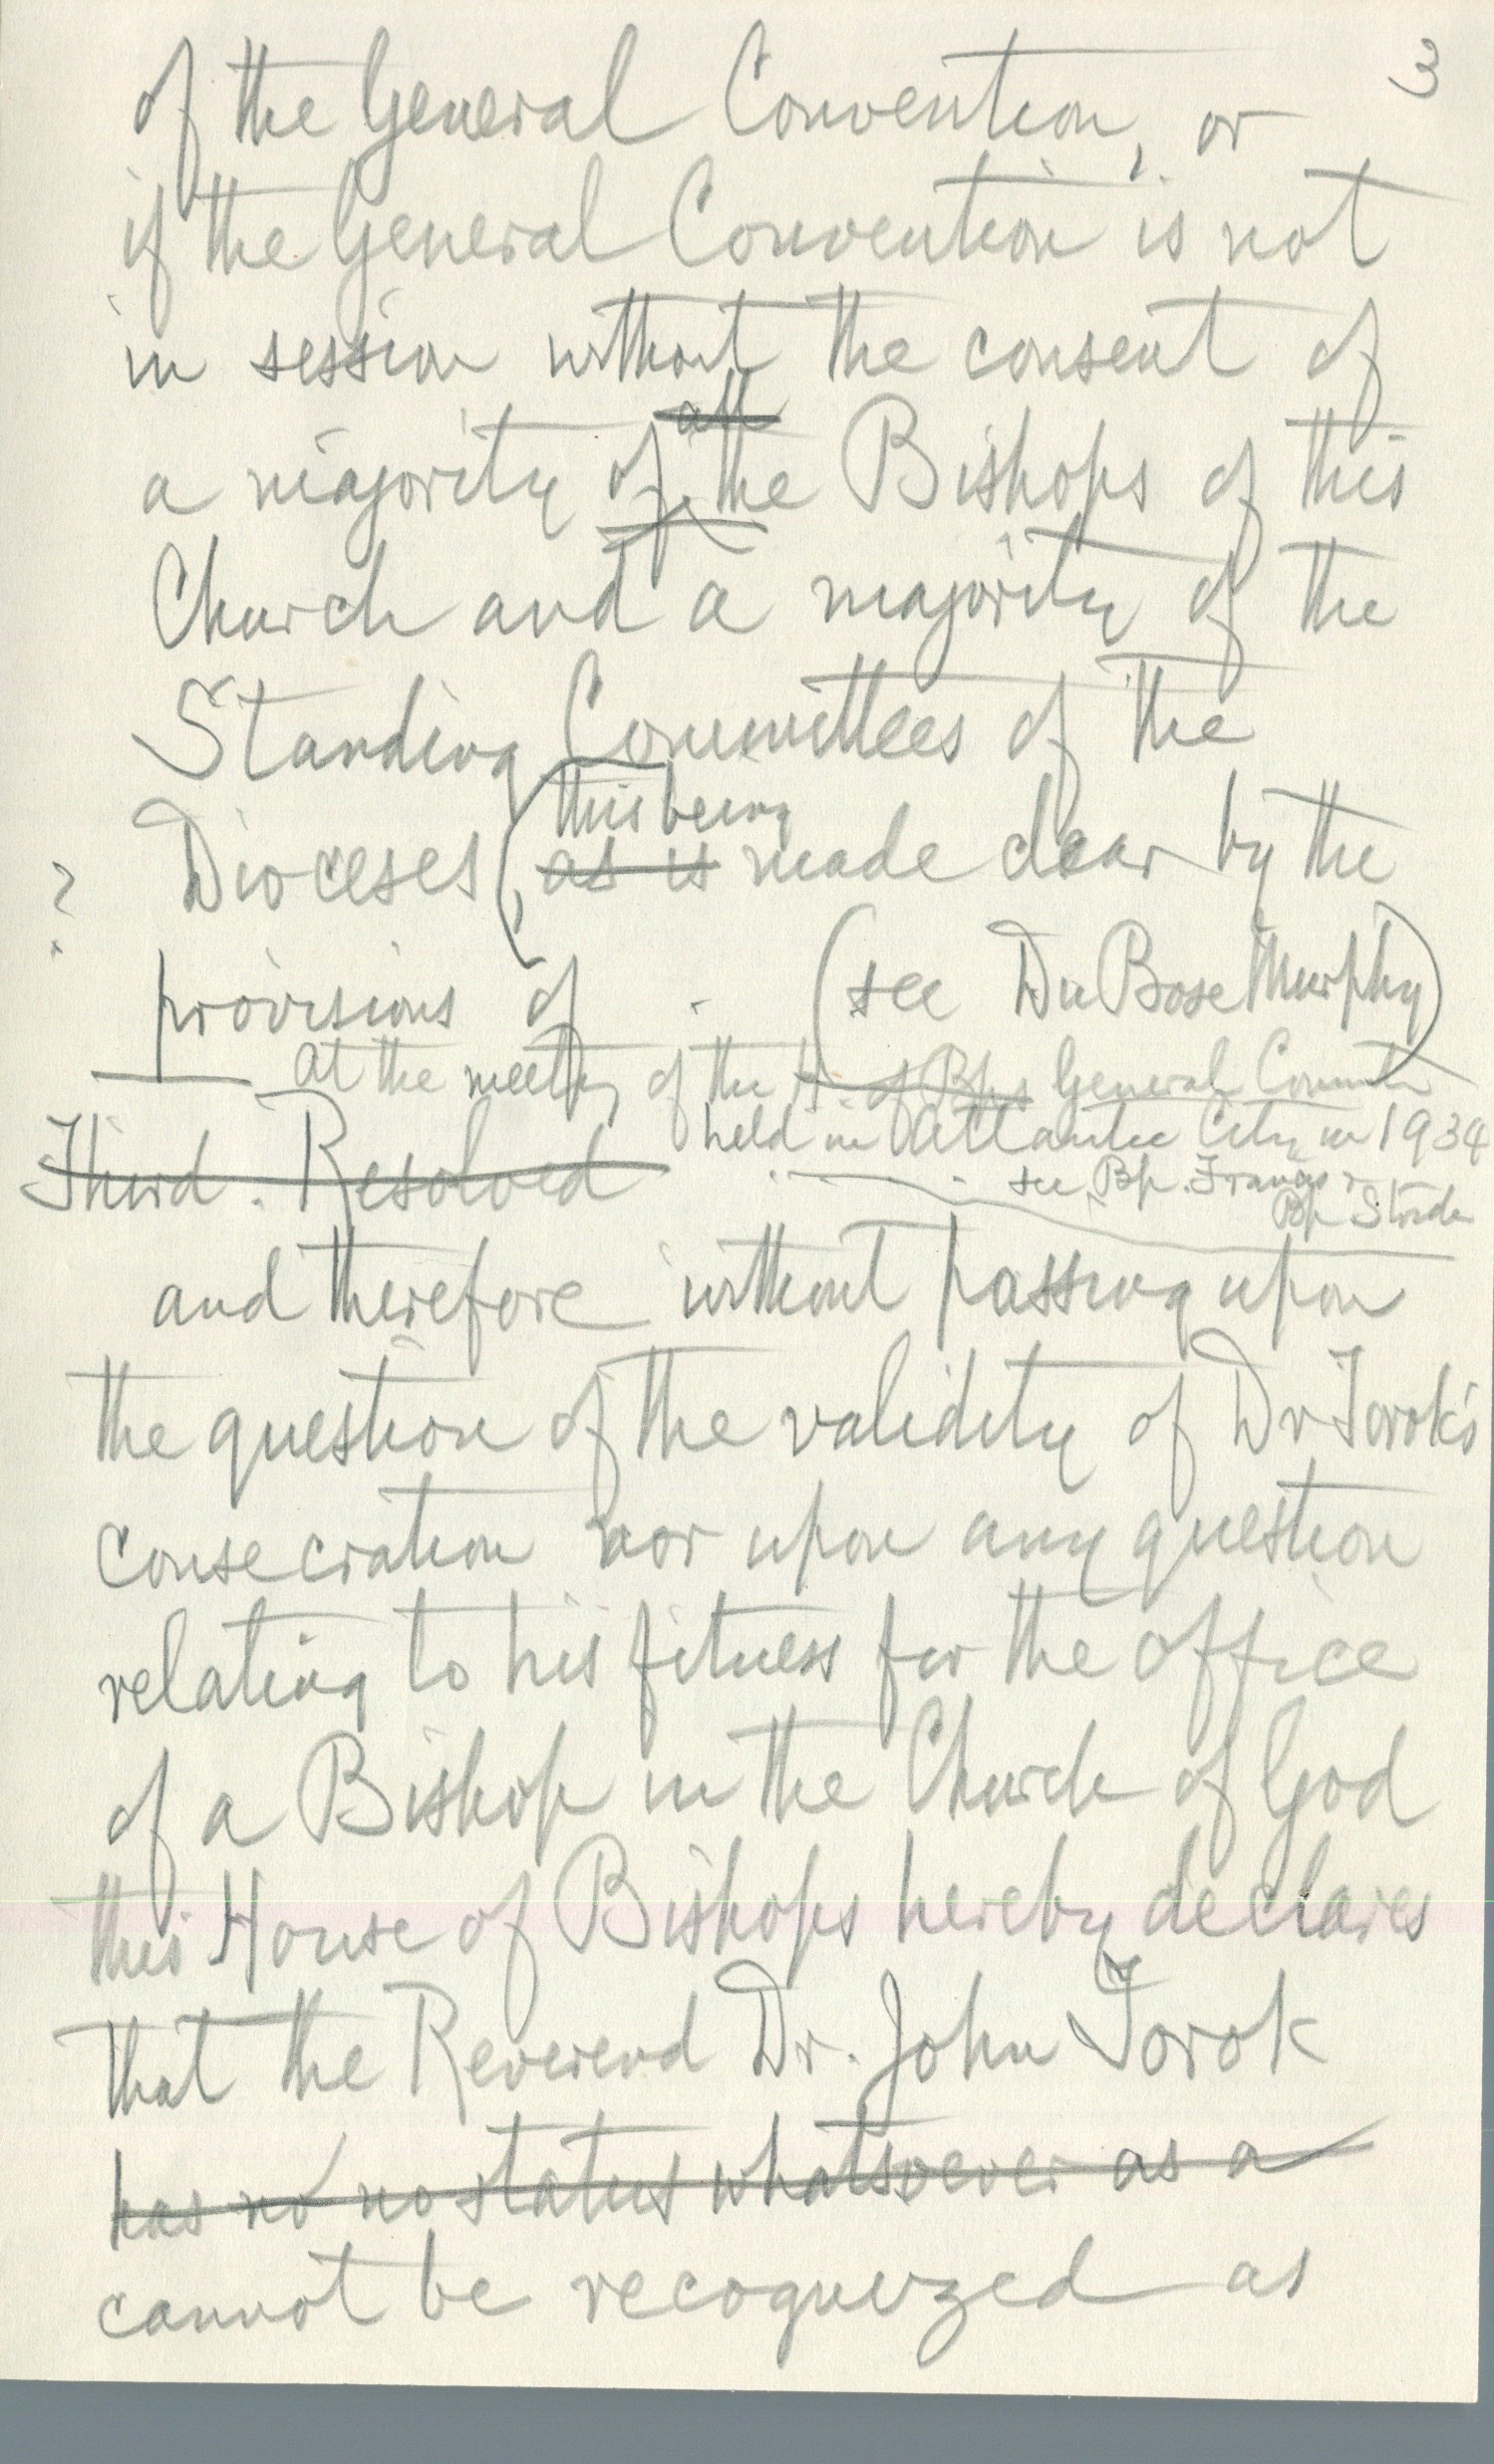 3
of the General Convention, or
if the General Convention is not
in session without the consent of
all
a majority of the Bishops of this
Church and a majority of the
Standing Committees of the
this being
? Dioceses (, as is made clear by the
provisions of (see DuBose Murphy)
at the meeting of the H. of Bps General Conventn
held in Atlantic City in 1934
Third. Resolved
see Bp. Francis
Bp
and therefore without passing upon
the question of the validity of Dr Torok's
consecration nor upon any question
relating to his fitness for the office
of a Bishop in the Church of God
this House of Bishops hereby declares
that the Reverend Dr. John Torok
has no no status whatsoever as a
cannot be recognized as